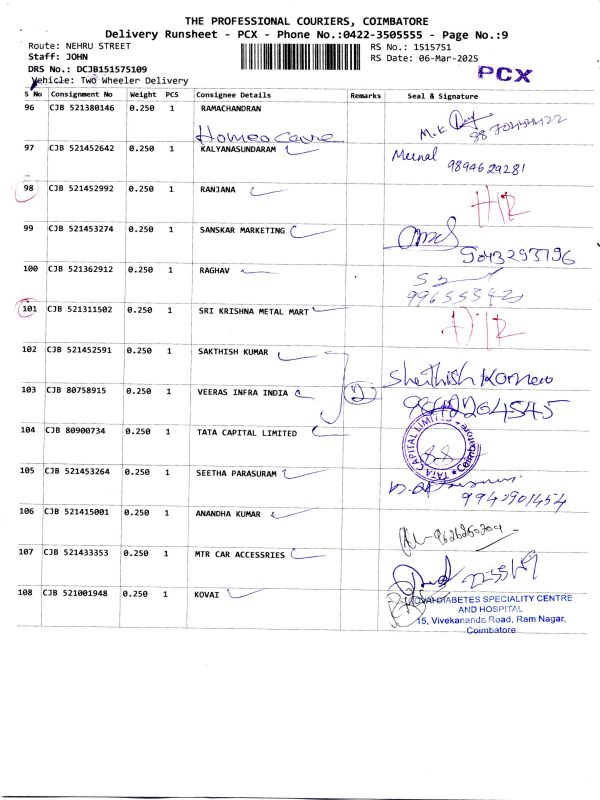 THE PROFESSIONAL COURIERS, COIMBATORE
Delivery Runsheet - PCX - Phone No.:0422-3505555 - Page No.:9
Route: NEHRU STREET
RS No.: 1515751
Staff: JOHN
RS Date: 06-Mar-2025
DRS No.: DCJB151575109
PCX
Vehicle: Two Wheeler Delivery
S No Consignment No Weight PCS Consignee Details Remarks Seal & Signature
96 CJB 521380146 0.250 1 RAMACHANDRAN
Homeo care M.K
97 CJB 521452642 0.250 1 KALYANASUNDARAM Meenal
9894629281
98 CJB 521452992 0.250 1 RANJANA D/R
99 CJB 521453274 0.250 1 SANSKAR MARKETING
9043293796
100 CJB 521362912 0.250 1 RAGHAV
101 CJB 521311502 0.250 1 SRI KRISHNA METAL MART D/R
102 CJB 521452591 0.250 1 SAKTHISH KUMAR
103 CJB 80758915 0.250 1 VEERAS INFRA INDIA 2
104 CJB 80900734 0.250 1 TATA CAPITAL LIMITED TATA CAPITAL LIMITED * Coimbatore *
105 CJB 521453264 0.250 1 SEETHA PARASURAM
9940901454
106 CJB 521415001 0.250 1 ANANDHA KUMAR
107 CJB 521433353 0.250 1 MTR CAR ACCESSRIES
108 CJB 521001948 0.250 1 KOVAI
KOVAI DIABETES SPECIALITY CENTRE
AND HOSPITAL
15, Vivekananda Road, Ram Nagar,
Coimbatore